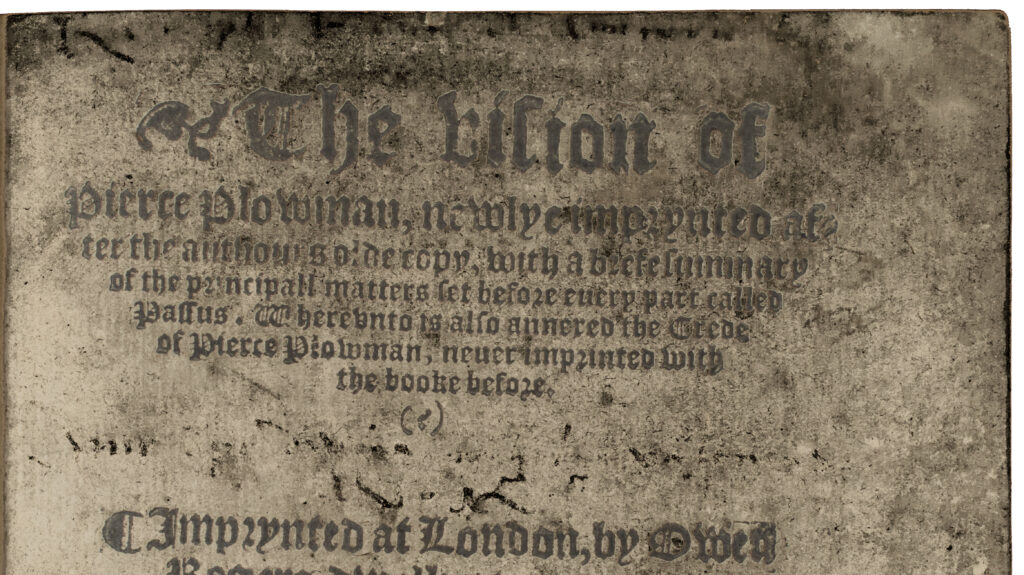 The vision of
Pierce Plowman, newlye imprynted af-
ter the authours olde copy, with a brefe summary
of the principall matters set before euery part called
Passus. Wherevnto is also annexed the Crede
of Pierce Plowman, neuer imprinted with
the booke before.
¶ Imprynted at London, by Owen